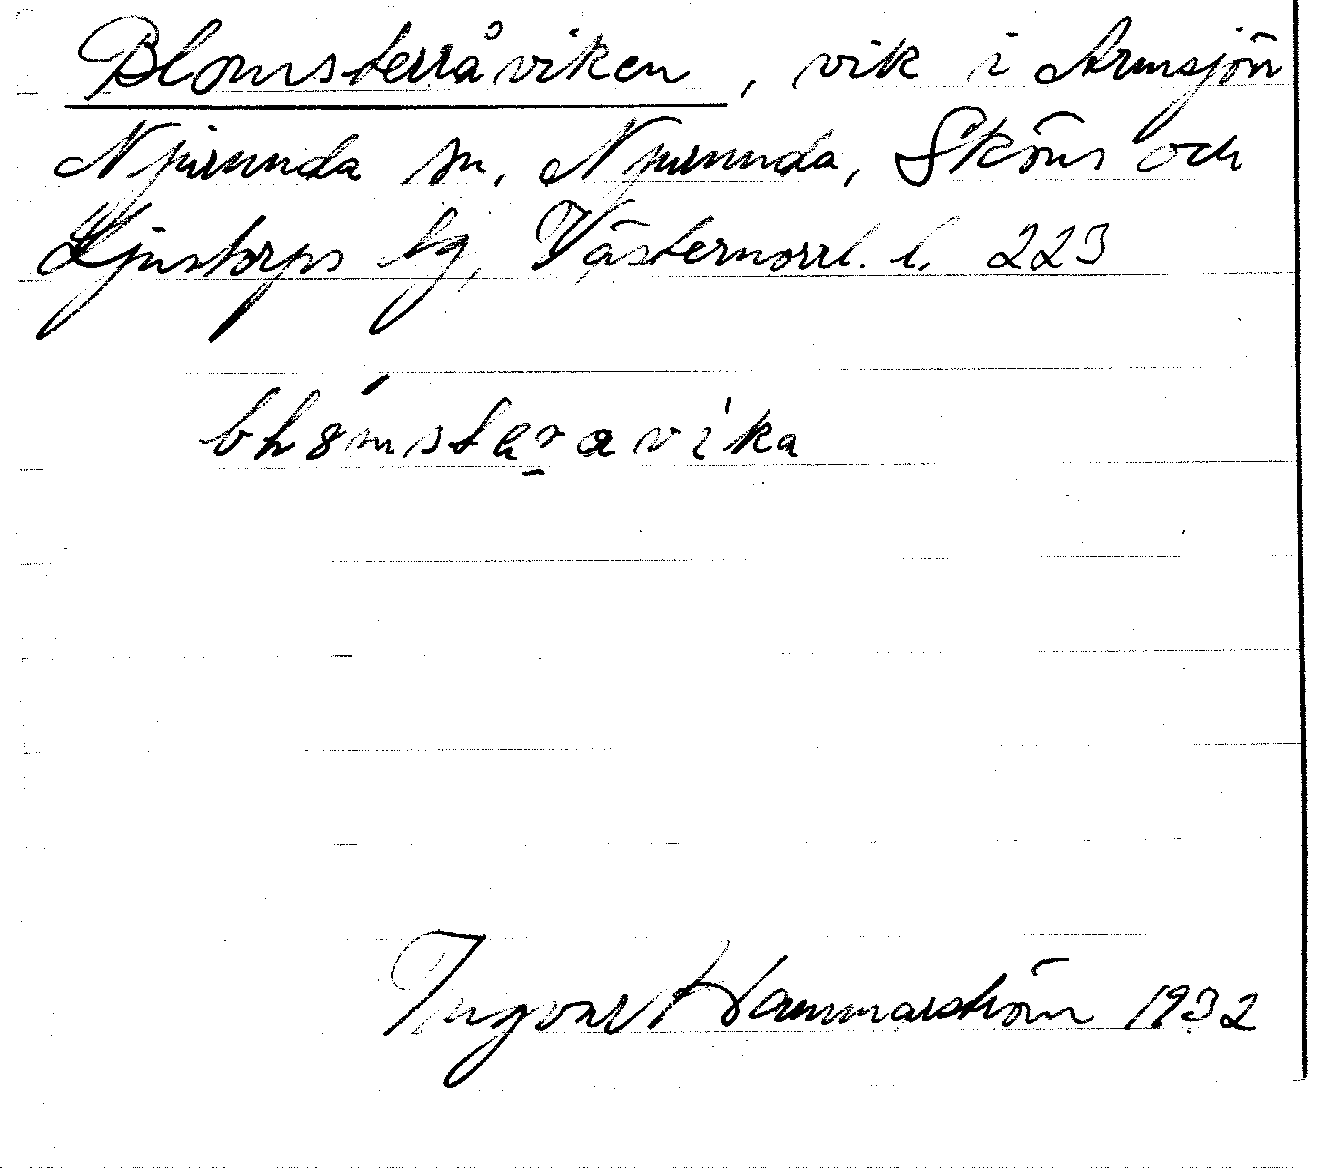 Blomsterråviken, vik i Armsjön
Njurunda sn, Njurunda, Sköns och
Ljustorps tg, Västernorrl. l. 223
Ingvar Hammarström 1932